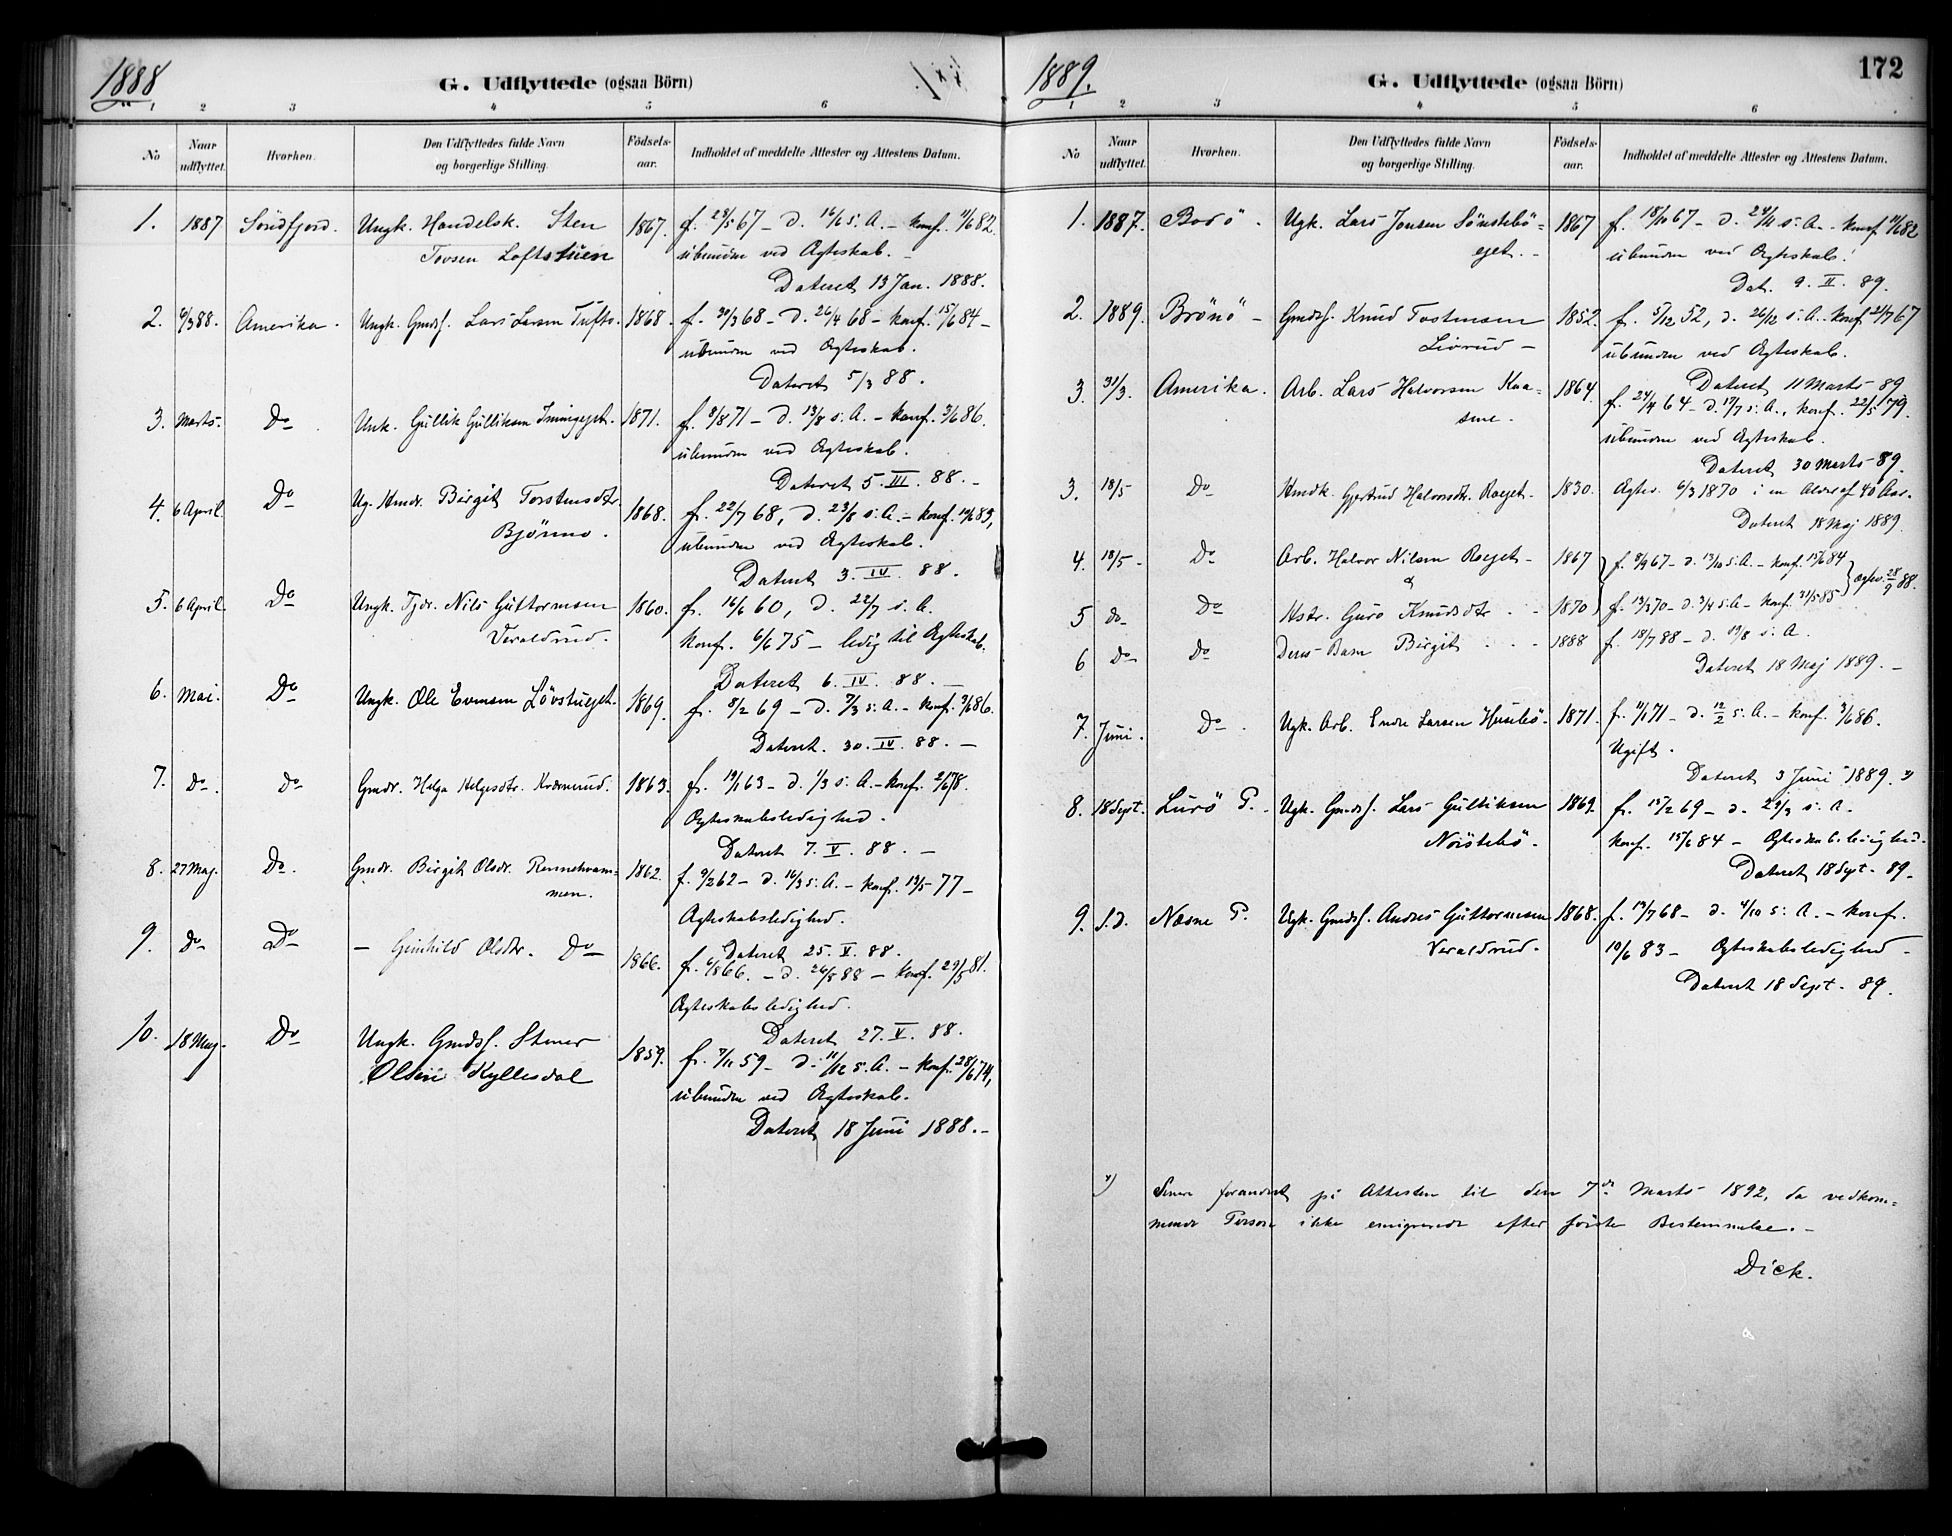 1888
G. Udflyttede (ogsaa Börn)
1 2 3 4 5 6
No
Naar udflyttet.
Hvorhen.
Den Udflyttedes fulde Navn og borgerlige Stilling.
Födsels-aar.
Indholdet af meddelte Attester og Attestens Datum.
1. 1887 Söndfjord. Ungk. Handelsk. Sten 1867. f. 28/5 67 – d. 16/6 s. A. – konf. 11/6 82.
Tovsen Loftstuen ubunden ved Ægteskab. –
Dateret 13 Jan. 1888.
2. 6/3 88. Amerika. Ungk. Gmdsf. Lars Larsen Tufto. 1868. f. 30/3 68 – d. 26/4 68 – konf. 15/6 84 –
ubunden ved Ægteskab.
Dateret 5/3 88.
3. Marts. Do Unk. Gullik Gulliksen 1871. f. 3/8 71 – d. 13/8 s. A. – konf. 3/6 86.
ubunden ved Ægteskab.
Dateret 5. III. 88. –
4. 6 April. Do Ug. Birgit Torstensdtr. 1868. f. 22/7 68, d. 23/8 s. A. – konf. 83,
Bjömo. ubunden ved Ægteskab.
Dateret 3. IV. 88.
5. 6 April. Do Ungk. Nils Guttormsen 1860. f. 16/6 60, d. 22/7 s. A.
Veraldrud. konf. 6/6 75 – ledig til Ægteskab.
Dateret 6. IV. 88. –
6. Mai. Do Ungk. Ole Evensen 1869. f. 8/2 69 – d. 7/3 s. A. – konf. 3/6 86.
Dateret. 30. IV. 88. –
7. Do. Do Gmdr. Helga Helgesdtr. 1863. f. 19/1 63 – d. 1/3 s. A. – konf. 2/6 78.
Ægteskabsledighed.
Dateret 7. V. 88. –
8. 27 Maj. Do. Gmdr. Birgit Olsdr. 1862. f. 9/2 62 – d. 16/3 s. A. – konf. 13/5 77 –
Ægteskabsledighed.
Dateret 25. V. 88.
9. Do Do – Gunhild Olsdtr. Do 1866. f. 66. – d. 26/8 88 – konf. 29/5 81.
Ægteskabsledighed.
Dateret 27. V. 88.
10. 18 Maj. Do Ungk. Gmdsf. Stener 1859. f. 7/11 59 – d. 11/12 s. A. – konf. 28/6 74,
Olsen Kyllesdal ubunden ved Ægteskab.
Dateret 18 Juni 1888. –
1889.
G. Udflyttede (ogsaa Börn)
172
1 2 3 4 5 6
No
Naar udflyttet.
Hvorhen.
Den Udflyttedes fulde Navn og borgerlige Stilling.
Födsels-aar.
Indholdet af meddelte Attester og Attestens Datum.
1. 1887. Bodö. Ugk. Lars Jonsen Sönstebö= 1867 f. 18/10 67 – d. 24/11 s. A. – konf. 11/6 82
eget. – ubunden ved Ægteskab.
Dat. 9. II. 89.
2. 1889. Brönö – Gmdsf. Knud Tostensen 1852. f. 5/12 52, d. 26/12 s. A. konf. 21/7 67
Livrud – ubunden ved Ægteskab.
Dateret 11 Marts 89
3. 31/3. Amerika. Arb. Lars Halvorsen Kaa= 1864. f. 24/4 64 – d. 17/7 s. A., konf. 22/5 79.
sene. ubunden ved Ægteskab.
Dateret 30 Marts 89.
3. 18/5 Do Gjertrud Halvorsdtr. Roeget. 1830. Ægtev. 6/3 1870 i en Alder af 40 Aar.
Dateret 18 Maj 1889.
4. 18/5 – Do Arb. Halvor Nilsen Roeget – 1867 f. 8/9 67 – d. 13/10 s. A. – konf. 15/6 84
&
5 do Do Hstr. Guro Knudsdtr. 1870 f. 13/3 70 – d. 3/4 s. A – konf. 31/5 85 } Ægtev. 28/9 88.
6 Do Do Deres Barn Birgit 1888 f. 18/7 88 – d. 19/8 s. A.
Dateret 18 Maj 1889. –
7. Juni. Do. Ugk. Arb. Endre Larsen Husebö. 1871. f. 11/1 71 – d. 12/2 s. A. – konf. 3/6 86.
Ugift.
Dateret 3 Juni 1889.
8. 18 Sept. Lurö P. Ugk. Gmdsf. Lars Gulliksen 1869. f. 15/2 69 – d. 29/3 s. A.
Nörstebö. konf. 15/6 84 – Ægteskabsledighed.
Dateret 18 Sept. 89.
9. S.D. Næsne P. Ugk. Gmdsf. Andres Guttormsen 1868. f. 13/7 68 – d. 4/10 s. A. – konf.
Veraldrud. 10/6 83 – Ægteskabsledighed –
Dateret 18 Sept. 89.
Senere forandret på Attesten til den 7de Marts 1892, da vedkom=
mende Person ikke emigrerede efter förste Bestemmelse. –
Dick.